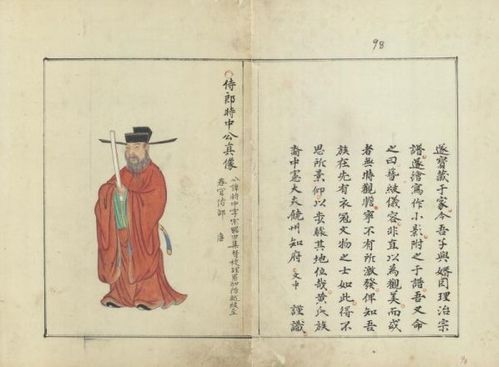 98
遂寶藏于家今吾子與因理治宗
譜遂繪寫作小影附之于譜吾又命
之曰簪紱儀容非直以為觀美而或
者無時觀瞻寧不有所激發俾知吾
族在先有衣冠文物之士如此得不
思所景仰以其地位哉黃氏族
裔中憲大夫饒州知府 文中 謹識
侍郎時中公真像
公諱時中字由集賢校理累加至
春官侍郎